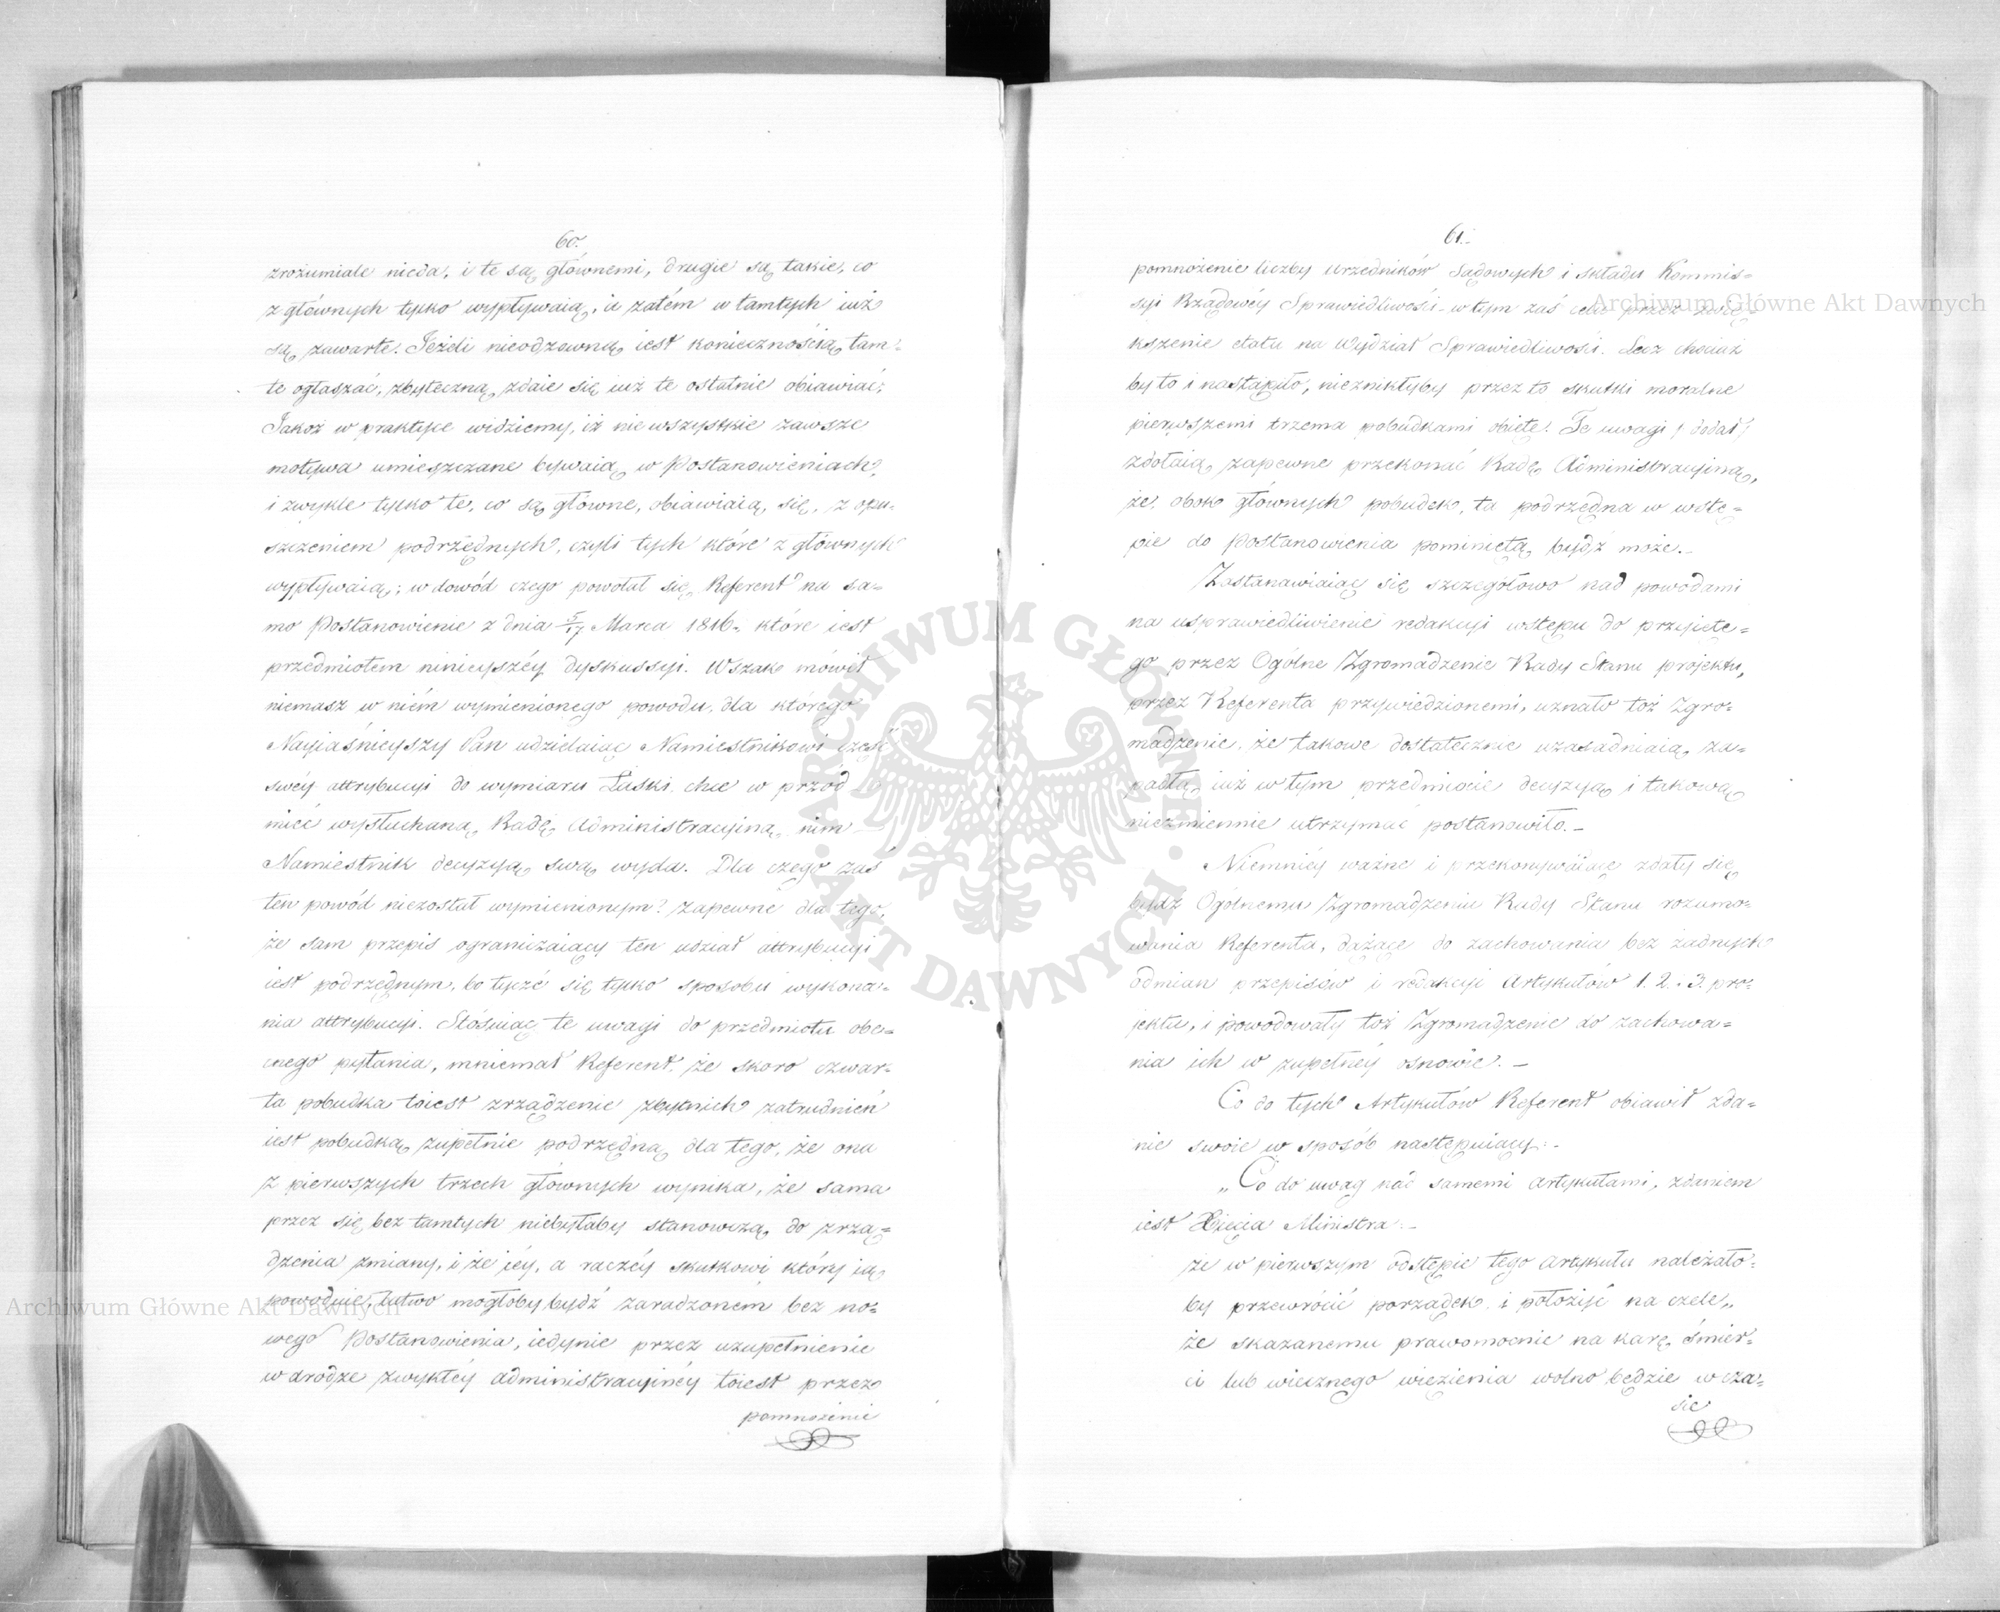 60.
zrozumiale nieda, i te są głównemi, drugie są takie, co
z głównych tylko wypływaią, a zatém w tamtych iuż
są zawarte. Jeżeli nieodzowną iest koniecznością tam-
te ogłaszać, zbyteczną zdaie się iuż te ostatnie obiawiać;
Jakoż w praktyce widziemy, iż nie wszystkie zawsze
motywa umieszczane bywaią w Postanowieniach,
i zwykle tylko te, co są główne, obiawiaią się, z opu-
szczeniem podrzędnych, czyli tych które z głównych
wypływaią; w dowód czego powołał się Referent na sa-
mo Postanowienie z dnia 5/17 Marca 1816, które iest
przedmiotem ninieyszéy dyskussyi. Wszak mówił
niemasz w niém wymienionego powodu, dla którego
Nayiaśnieyszy Pan udzielaiąc Namiestnikowi część
swéy attrybucyi do wymiaru Łaski, chce w przód
mieć wysłuchaną Radę Administracyiną, nim
Namiestnik decyzyą swą wyda. Dla czego zaś
ten powód niezostał wymienionym? zapewne dla tego,
że sam przepis ograniczaiący ten udział attrybucyi
iest podrzędnym, bo tyczé się tylko sposobu wykona-
nia attrybucyi. Stósuiąc te uwagi do przedmiotu obe-
cnego pytania, mniemał Referent, że skoro czwar-
ta pobudka toiest zrządzenie zbytnich zatrudnień
iest pobudką zupełnie podrzędną dla tego, że ona
z pierwszych trzech głównych wynika, że sama
przez się bez tamtych niebyłaby stanowczą do zrzą-
dzenia zmiany, i że iéy, a raczéy skutkowi który ią
powoduie, łatwo mogłoby bydź zaradzoném bez no-
wego Postanowienia, iedynie przez uzupełnienie
w drodze zwykłéy administracyinéy toiest przez
pomnożenie
61.
pomnożenie liczby urzędników Sądowych i składu Kommis-
syi Rządowéy Sprawiedliwości w tym zaś celu przez zwię-
kszenie etatu na Wydział Sprawiedliwości. Lecz chociaż
by to i nastąpiło, niezniktyby przez to skutki moralne
pierwszemi trzema pobudkami obięte. Te uwagi / dodał /
zdołaią zapewne przekonać Radę Administracyiną,
że, obok głównych pobudek, ta podrzędna w wstę-
pie do Postanowienia pominiętą bydź może.
Zastanawiaiąc się szczegółowo nad powodami
na usprawiedliwienie redakcyi wstępu do przyięte-
go przez Ogólne Zgromadzenie Rady Stanu projektu,
przez Referenta przywiedzionemi, uznało toż Zgro-
madzenie, że takowe dostatecznie uzasadniaią za-
padłą iuż w tym przedmiocie decyzyą i takową
niezmiennie utrzymać postanowiło.
Niemniéy ważne i przekonywaiące zdały się
bydź Ogólnemu Zgromadzeniu Rady Stanu rozumo-
wania Referenta, dążące do zachowania bez żadnych
odmian przepisów i redakcyi Artykułów 1. 2. i 3. pro-
jektu, i powodowały toż Zgromadzenie do zachowa-
nia ich w zupełnéy osnowie.
Co do tych Artykułów Referent obiawił zda-
nie swoie w sposób następuiący:
„Co do uwag nad samemi Artykułami, zdaniem
iest Xięcia Ministra:
że w pierwszym odstępie tego Artykułu należało-
by przewrócić porządek i położyć na czele„
że skazanemu prawomocnie na karę śmier-
ci lub wiecznego więzienia wolno będzie w cza-
sie
Archiwum Główne Akt Dawnych
Archiwum Główne Akt Dawnych
ARCHIWUM GŁÓWNE AKT DAWNYCH